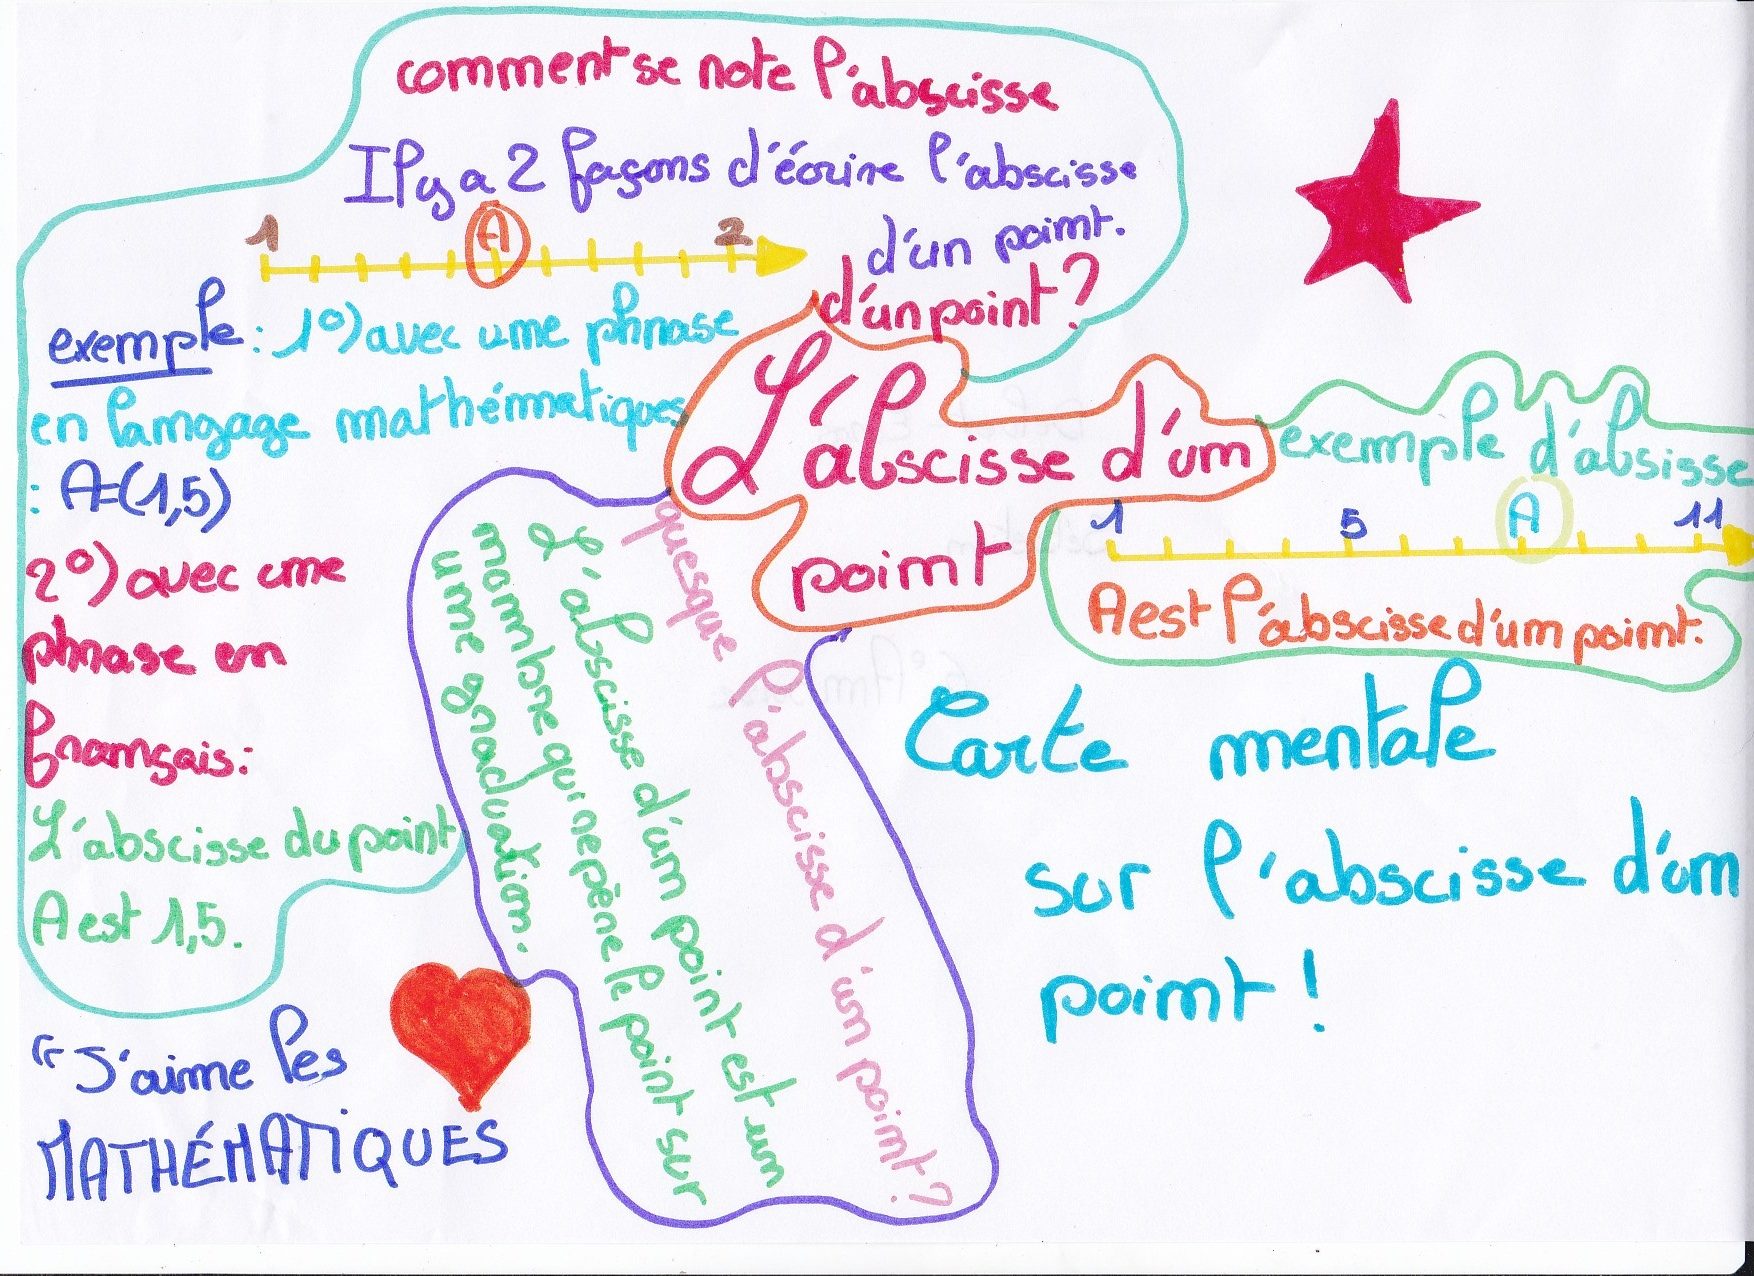 comment se note l'abscisse
Il y a 2 façons d'écrire l'abscisse
d'un point.
d'un point ?
1 A 2
exemple : 1°) avec une phrase
en langage mathématiques
: A=(1,5)
2°) avec une
phrase en
français :
L'abscisse du point
A est 1,5.
L'abscisse d'un
point
exemple d'absisse
1 5 A 11
A est l'abscisse d'un point.
quesque l'abscisse d'un point ?
L'abscisse d'un point est un
nombre qui repère le point sur
une graduation.
Carte mentale
sur l'abscisse d'un
point !
"J'aime les
MATHÉMATIQUES